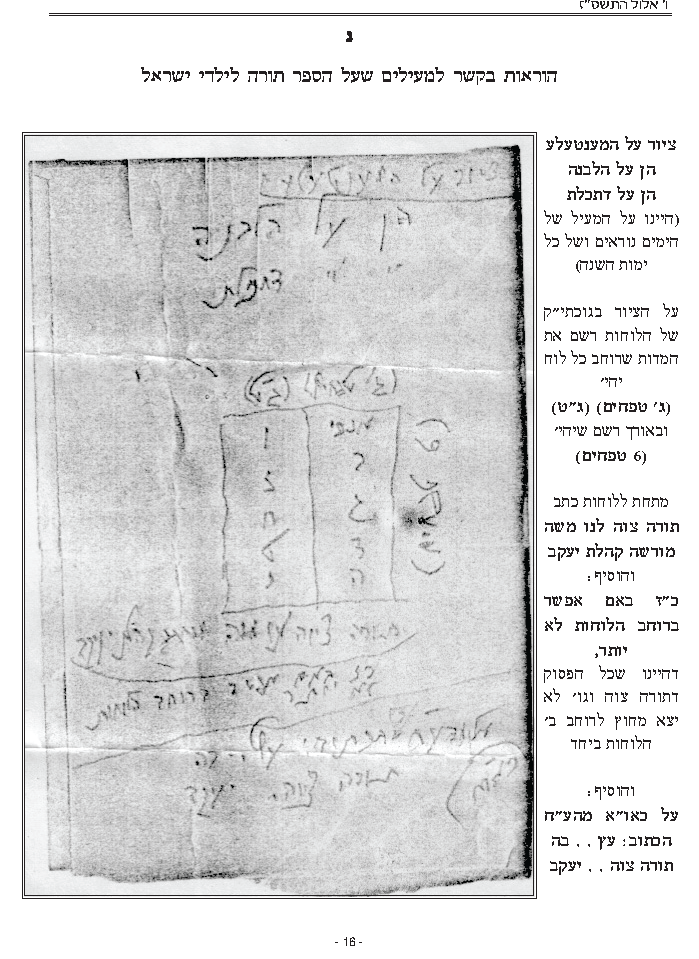 ו' אלול התשס"ז
נ
הוראות בקשר למעילים שעל הספר תורה לילדי ישראל
ציור על המענטעלע
הן על הלבנה
הן על דתכלת
(היינו על המעיל של
הימים נוראים ושל כל
ימות השנה)
על הציור בגוכתי"ק
של הלוחות רשם את
המדות שרוחב כל לוח
יהי'
(ג' טפחים) (ג"ט)
ובאורך רשם שיהי'
(6 טפחים)
מתחת ללוחות כתב
תורה צוה לנו משה
מורשה קהלת יעקב
והוסיף:
כ"ז באם אפשר
ברוחב הלוחות לא
יותר,
דהיינו שכל הפסוק
דתורה צוה וגו' לא
יצא מחוץ לרוחב ב'
הלוחות ביחד
והוסיף:
על כאו"א מהע"ח
הכתוב: עץ . . בה
תורה צוה . . יעקב
ציור על המענטעלע
הן על הלבנה
" " דתכלת
(ג' טפחים) (ג"ט)
(6 טפחים)
אנכי
ב
ג
ד
ה
ו
ז
ח
ט
י
תורה צוה לנו משה מורשה קהלת יעקב
כ"ז באם אפשר ברוחב הלוחות
לא יותר
תורה צוה . . יעקב
- 16 -